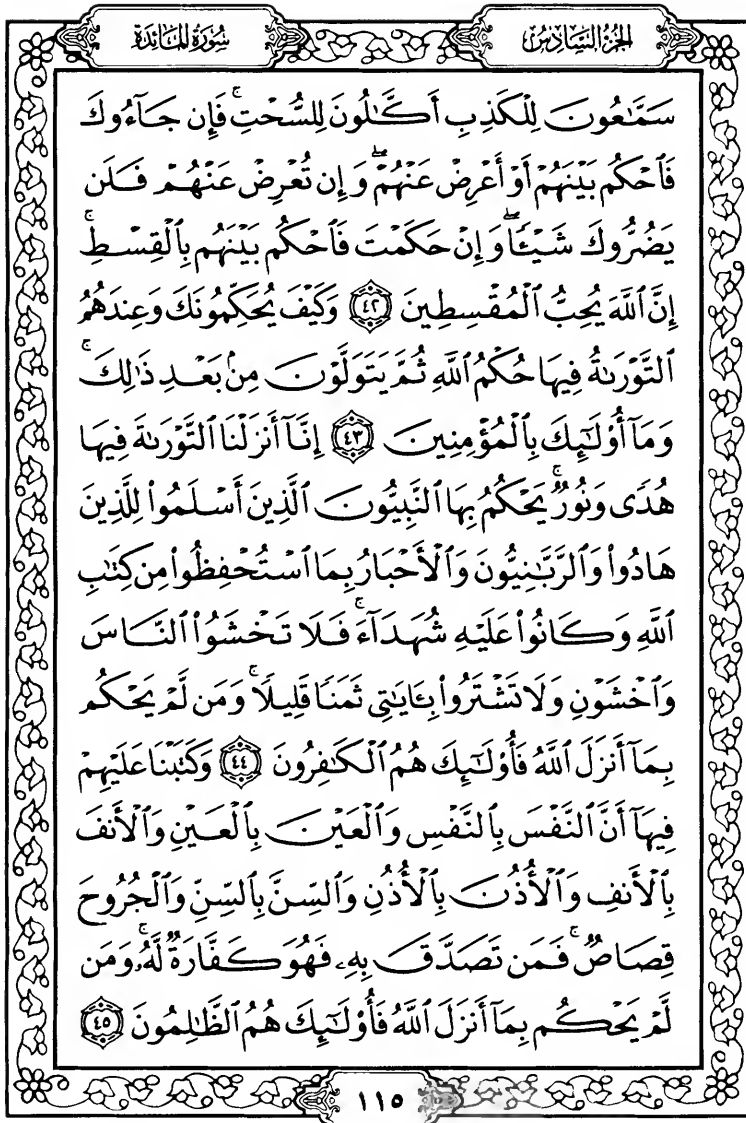 سُورَةُ المَائِدَةِ
الجُزْءُ السَّادِسُ
سَمَّٰعُونَ لِلْكَذِبِ أَكَّٰلُونَ لِلسُّحْتِ ۚ فَإِن جَآءُوكَ
فَٱحْكُم بَيْنَهُمْ أَوْ أَعْرِضْ عَنْهُمْ ۖ وَإِن تُعْرِضْ عَنْهُمْ فَلَن
يَضُرُّوكَ شَيْـًٔا ۖ وَإِنْ حَكَمْتَ فَٱحْكُم بَيْنَهُم بِٱلْقِسْطِ ۚ
إِنَّ ٱللَّهَ يُحِبُّ ٱلْمُقْسِطِينَ ٤٢ وَكَيْفَ يُحَكِّمُونَكَ وَعِندَهُمُ
ٱلتَّوْرَىٰةُ فِيهَا حُكْمُ ٱللَّهِ ثُمَّ يَتَوَلَّوْنَ مِنۢ بَعْدِ ذَٰلِكَ ۚ
وَمَآ أُو۟لَـٰٓئِكَ بِٱلْمُؤْمِنِينَ ٤٣ إِنَّآ أَنزَلْنَا ٱلتَّوْرَىٰةَ فِيهَا
هُدًى وَنُورٌ ۚ يَحْكُمُ بِهَا ٱلنَّبِيُّونَ ٱلَّذِينَ أَسْلَمُوا۟ لِلَّذِينَ
هَادُوا۟ وَٱلرَّبَّـٰنِيُّونَ وَٱلْأَحْبَارُ بِمَا ٱسْتُحْفِظُوا۟ مِن كِتَـٰبِ
ٱللَّهِ وَكَانُوا۟ عَلَيْهِ شُهَدَآءَ ۚ فَلَا تَخْشَوُا۟ ٱلنَّاسَ
وَٱخْشَوْنِ وَلَا تَشْتَرُوا۟ بِـَٔايَـٰتِى ثَمَنًا قَلِيلًا ۚ وَمَن لَّمْ يَحْكُم
بِمَآ أَنزَلَ ٱللَّهُ فَأُو۟لَـٰٓئِكَ هُمُ ٱلْكَـٰفِرُونَ ٤٤ وَكَتَبْنَا عَلَيْهِمْ
فِيهَآ أَنَّ ٱلنَّفْسَ بِٱلنَّفْسِ وَٱلْعَيْنَ بِٱلْعَيْنِ وَٱلْأَنفَ
بِٱلْأَنفِ وَٱلْأُذُنَ بِٱلْأُذُنِ وَٱلسِّنَّ بِٱلسِّنِّ وَٱلْجُرُوحَ
قِصَاصٌ ۚ فَمَن تَصَدَّقَ بِهِۦ فَهُوَ كَفَّارَةٌ لَّهُۥ ۚ وَمَن
لَّمْ يَحْكُم بِمَآ أَنزَلَ ٱللَّهُ فَأُو۟لَـٰٓئِكَ هُمُ ٱلظَّـٰلِمُونَ ٤٥
١١٥